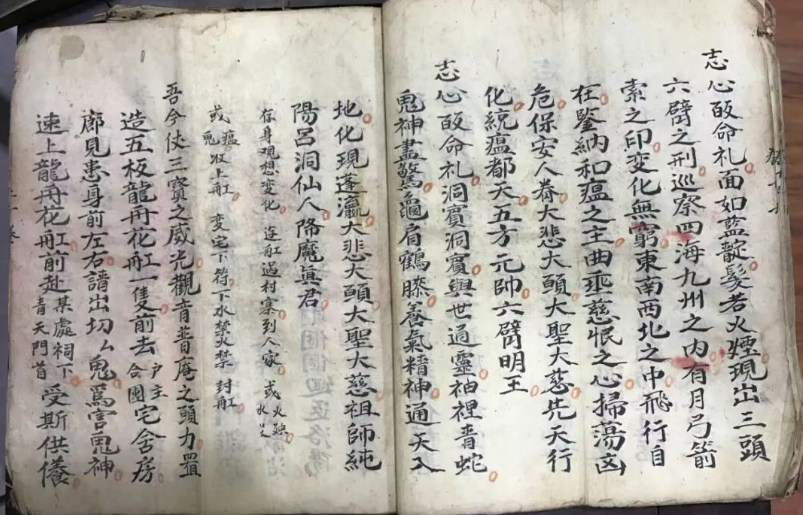 志心皈命礼面如藍靛髮若火煙現出三頭
六臂之刑巡察四海九州之内有月弓箭
索之印変化無窮東南西北之中飛行自
在鑒納和瘟之主曲垂慈愍之心掃蕩凶
危保安人眷大悲大願大聖大慈先天行
化統瘟都天五方元帥六臂明王
志心皈命礼洞賓洞賓與世通靈袖裡青蛇
鬼神盡驚龜肩鶴膝養氣精神通天入
地化現蓬瀛大悲大願大聖大慈祖師純
陽呂洞仙人降魔眞君
存身观想変化 連舡過村寨到人家 或火
或瘟鬼收上舡 変宅下符下水禁火禁 封舡
吾今仗三寶之威光觀音菩薩之願力置
造五板龍舟花舡一隻前去戶主合團宅舍房
廊見患身前左右請出切厶鬼爲害鬼神
速上龍舟花舡前赴某處祠下青天門首受斯供儀